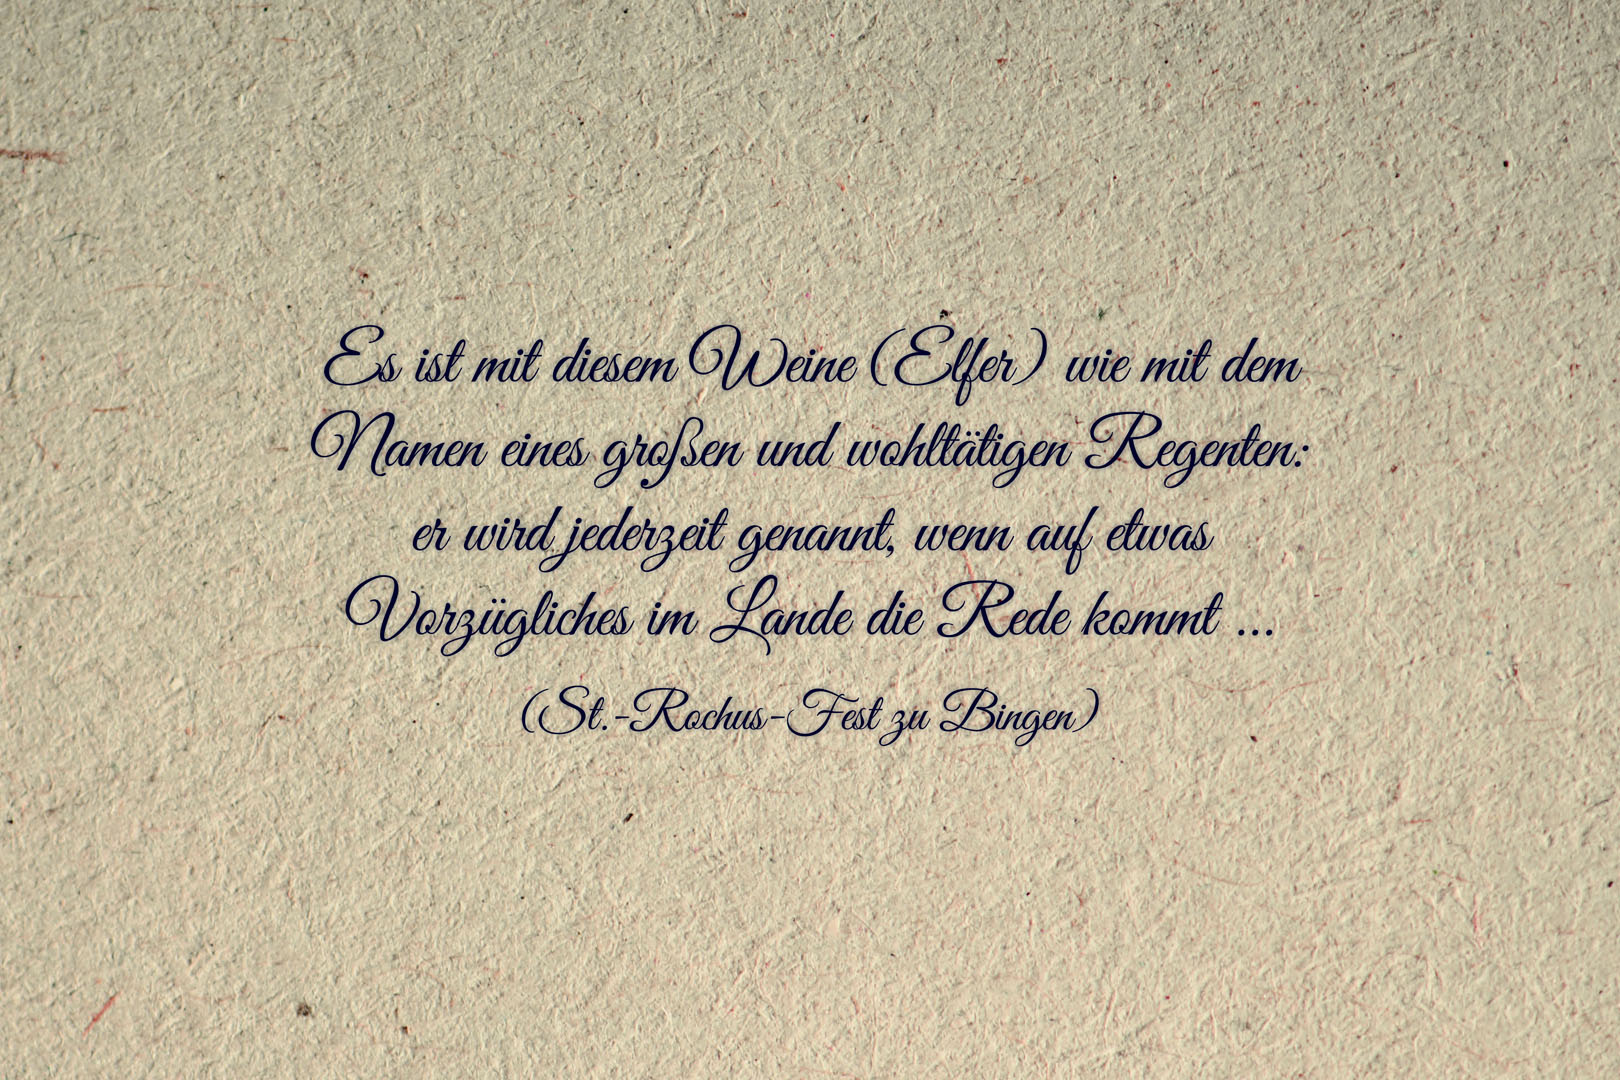 Es ist mit diesem Weine (Elfer) wie mit dem
Namen eines großen und wohltätigen Regenten:
er wird jederzeit genannt, wenn auf etwas
Vorzügliches im Lande die Rede kommt ...
(St.-Rochus-Fest zu Bingen)